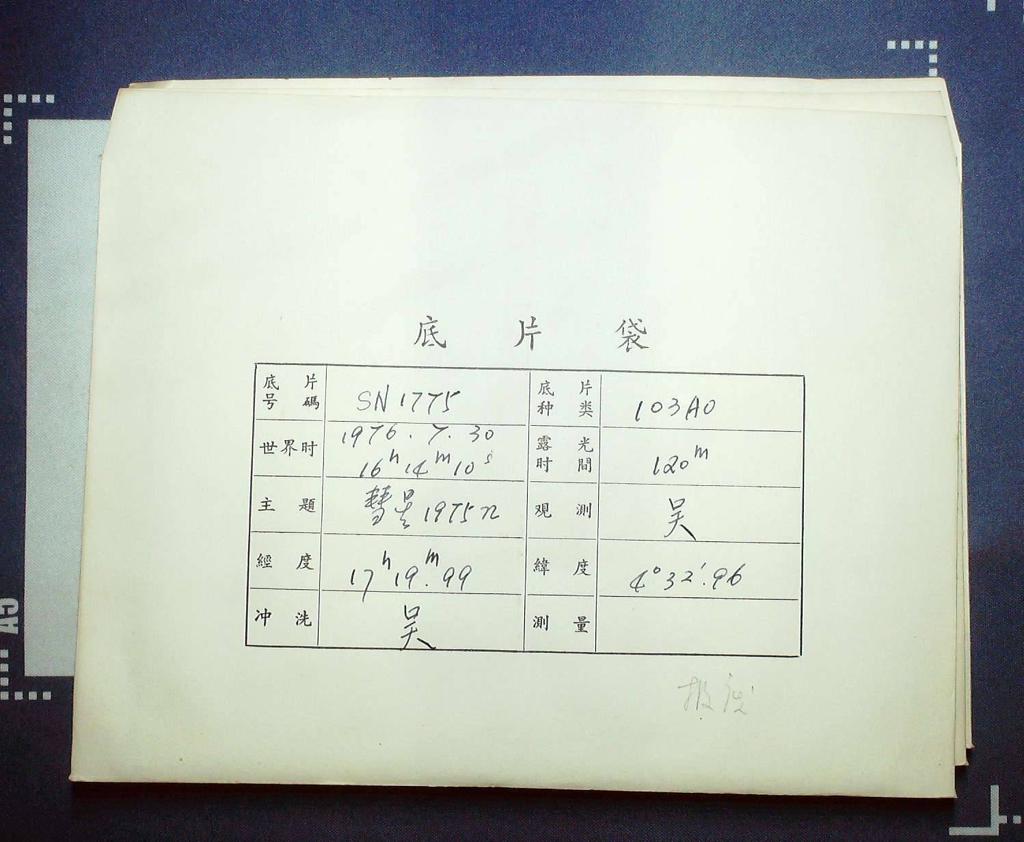 底片袋
底片号碼 SN1775 底片种类 103AO
世界时 1976.7.30 16h14m10s 露光时間 120m
主題 彗星1975n 观測 吴
經度 17h19m.99 緯度 4°32'.96
冲洗 吴 測量
报废
A5